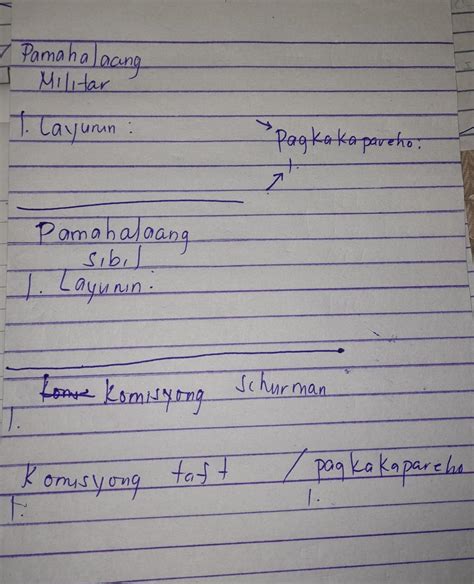 Pamahalaang
Militar
1. Layunin :
Pagkakapareho:
1.
Pamahalaang
sibil
1. Layunin :
Komisyong Schurman
1.
Komisyong taft / pagkakapareho
1. 1.